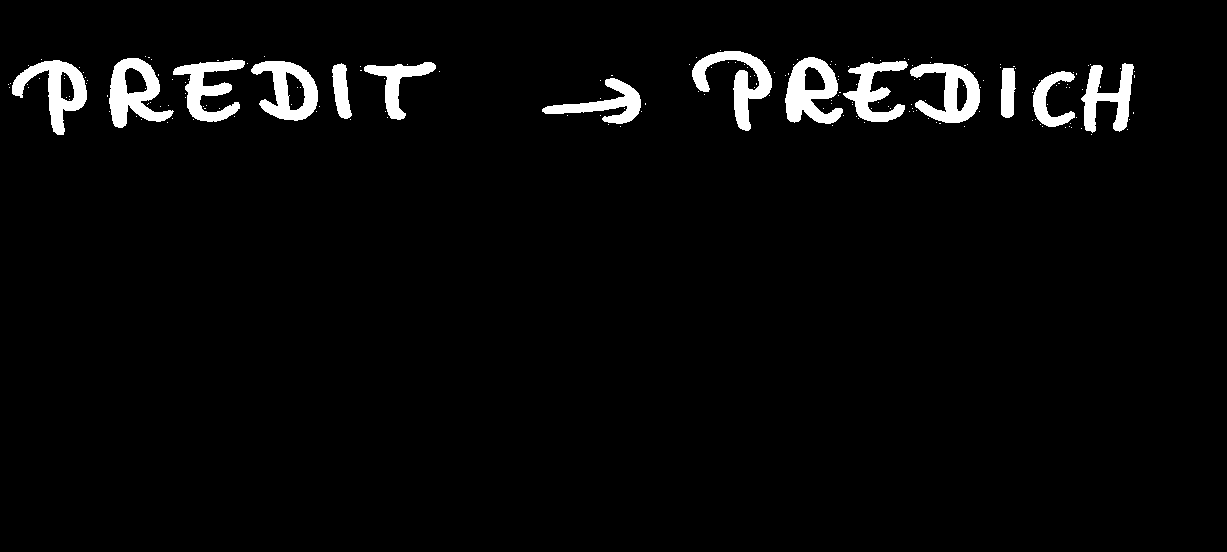 PREDIT → PREDICH